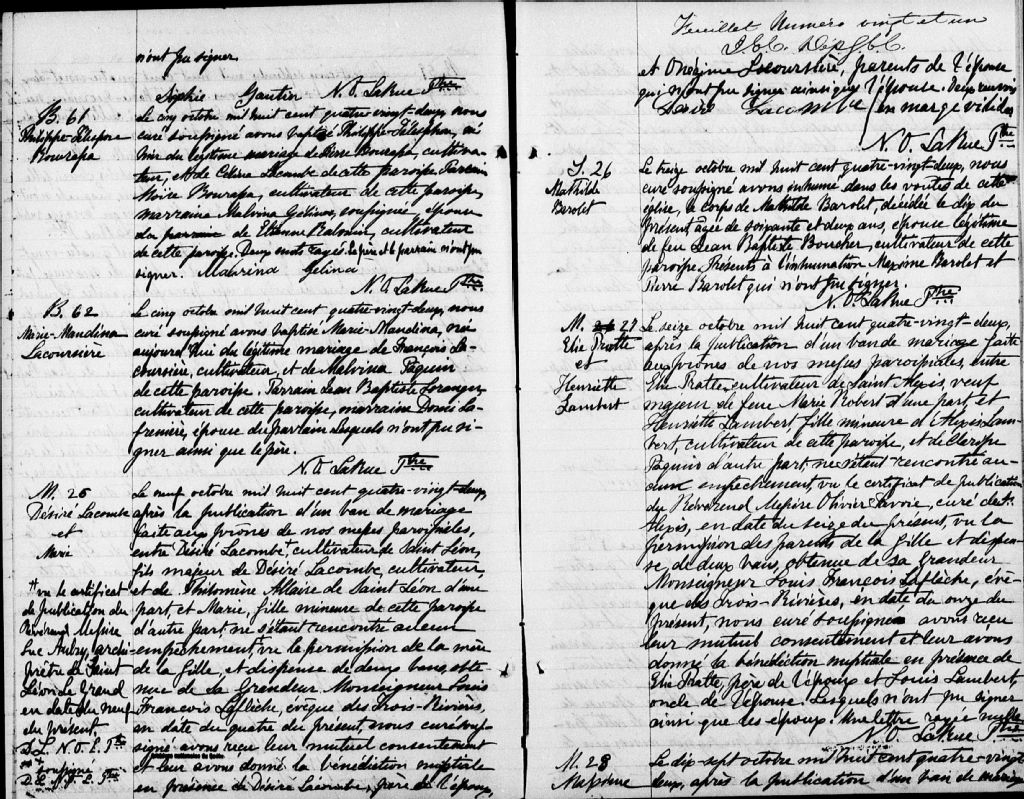 n'ont pu signer.
Sophie Gautier N. O. LaRue Ptre
B. 61
Philippe-Télespore
Bourapa
Le cinq octobre mil huit cent quatre-vingt-deux, nous
curé soussigné avons baptisé Philippe-Télesphore, né
hier du légitime mariage de Pierre Bourapa, cultiva-
teur, et de Célina Lacombe de cette paroisse. Parrain
Moïse Bourapa, cultivateur de cette paroisse,
marraine Malvina Gélinas, soussignée, épouse
du parrain de Etienne, cultivateur
de cette paroisse. Deux mots rayés. Le père et le parrain n'ont pu
signer. Malvina Gelina
N. O. LaRue Ptre
B. 62
Marie-Mandina
Lacoursière
Le cinq octobre mil huit cent quatre-vingt-deux, nous
curé soussigné avons baptisé Marie-Mandina, née
aujourd'hui du légitime mariage de François La-
coursière, cultivateur, et de Malvina Paquin
de cette paroisse. Parrain Jean Baptiste Loranger,
cultivateur de cette paroisse, marraine La-
frenière, épouse du parrain lesquels n'ont pu si-
gner ainsi que le père.
N. O. LaRue Ptre
M. 26
Désiré Lacombe
et
Marie
Le neuf octobre mil huit cent quatre-vingt-deux,
après la publication d'un ban de mariage
faite aux prônes de nos messes paroissiales,
entre Désiré Lacombe, cultivateur de Saint Léon,
fils majeur de Désiré Lacombe, cultivateur,
et de Philomène Allaire de Saint Léon d'une
part et Marie, fille mineure de cette paroisse
d'autre part, ne s'étant rencontré aucun
empêchement, vu la permission de la mère
de la fille, et dispense de deux bans, obte-
nue de Sa Grandeur Monseigneur Louis
François Laflèche, évêque des Trois-Rivières,
en date du quatre du présent, nous curé sous-
signé avons reçu leur mutuel consentement
et leur avons donné la bénédiction nuptiale
en présence de Désiré Lacombe, père de l'époux,
+ vu le certificat
de publication du
Révérend Messire
Luc Aubry, archi-
prêtre de Saint
Léon de Grand
en date du neuf
du présent,
D. L. N. O. L. Ptre
soussigné
Feuillet Numéro vingt et un
et Onésime Lacoursière, parents de l'épouse
qui n'ont pu signer ainsi que l'épouse. Deux renvois
Désiré Lacombe en marge valides
N. O. LaRue Ptre
S. 26
Mathilde
Barolet
Le treize octobre mil huit cent quatre-vingt-deux, nous
curé soussigné avons inhumé dans les voûtes de cette
église, le corps de Mathilde Barolet, décédée le dix du
présent, agée de soixante et deux ans, épouse légitime
de feu Jean Baptiste Boucher, cultivateur de cette
paroisse. Présents à l'inhumation Maxime Barolet et
Pierre Barolet qui n'ont pu signer.
N. O. LaRue Ptre
M. 26 27
Elie Pratte
et
Henriette
Lambert
Le seize octobre mil huit cent quatre-vingt-deux,
après la publication d'un ban de mariage faite
aux prônes de nos messes paroissiales, entre
Elie Pratte, cultivateur de Saint Alexis, veuf
majeur de feue Marie Robert d'une part et
Henriette Lambert, fille mineure d'Alexis Lam-
bert, cultivateur de cette paroisse, et de Clerisse
Paquin d'autre part, ne s'étant rencontré au-
cun empêchement, vu le certificat de publication
du Révérend Messire Olivier Savoie, curé de St
Alexis, en date du seize du présent, vu la
permission des parents de la fille et dispen-
se, de deux bans, obtenue de Sa Grandeur
Monseigneur Louis François Laflèche, évê-
que des Trois-Rivières, en date du onze du
présent, nous curé soussigné avons reçu
leur mutuel consentement et leur avons
donné la bénédiction nuptiale en présence de
Elie Pratte, père de l'époux et Louis Lambert,
oncle de l'épouse. Lesquels n'ont pu signer
ainsi que les époux. Une lettre rayée nulle.
N. O. LaRue Ptre
M. 28
Le dix-sept octobre mil huit cent quatre-vingt-
deux, après la publication d'un ban de mariage